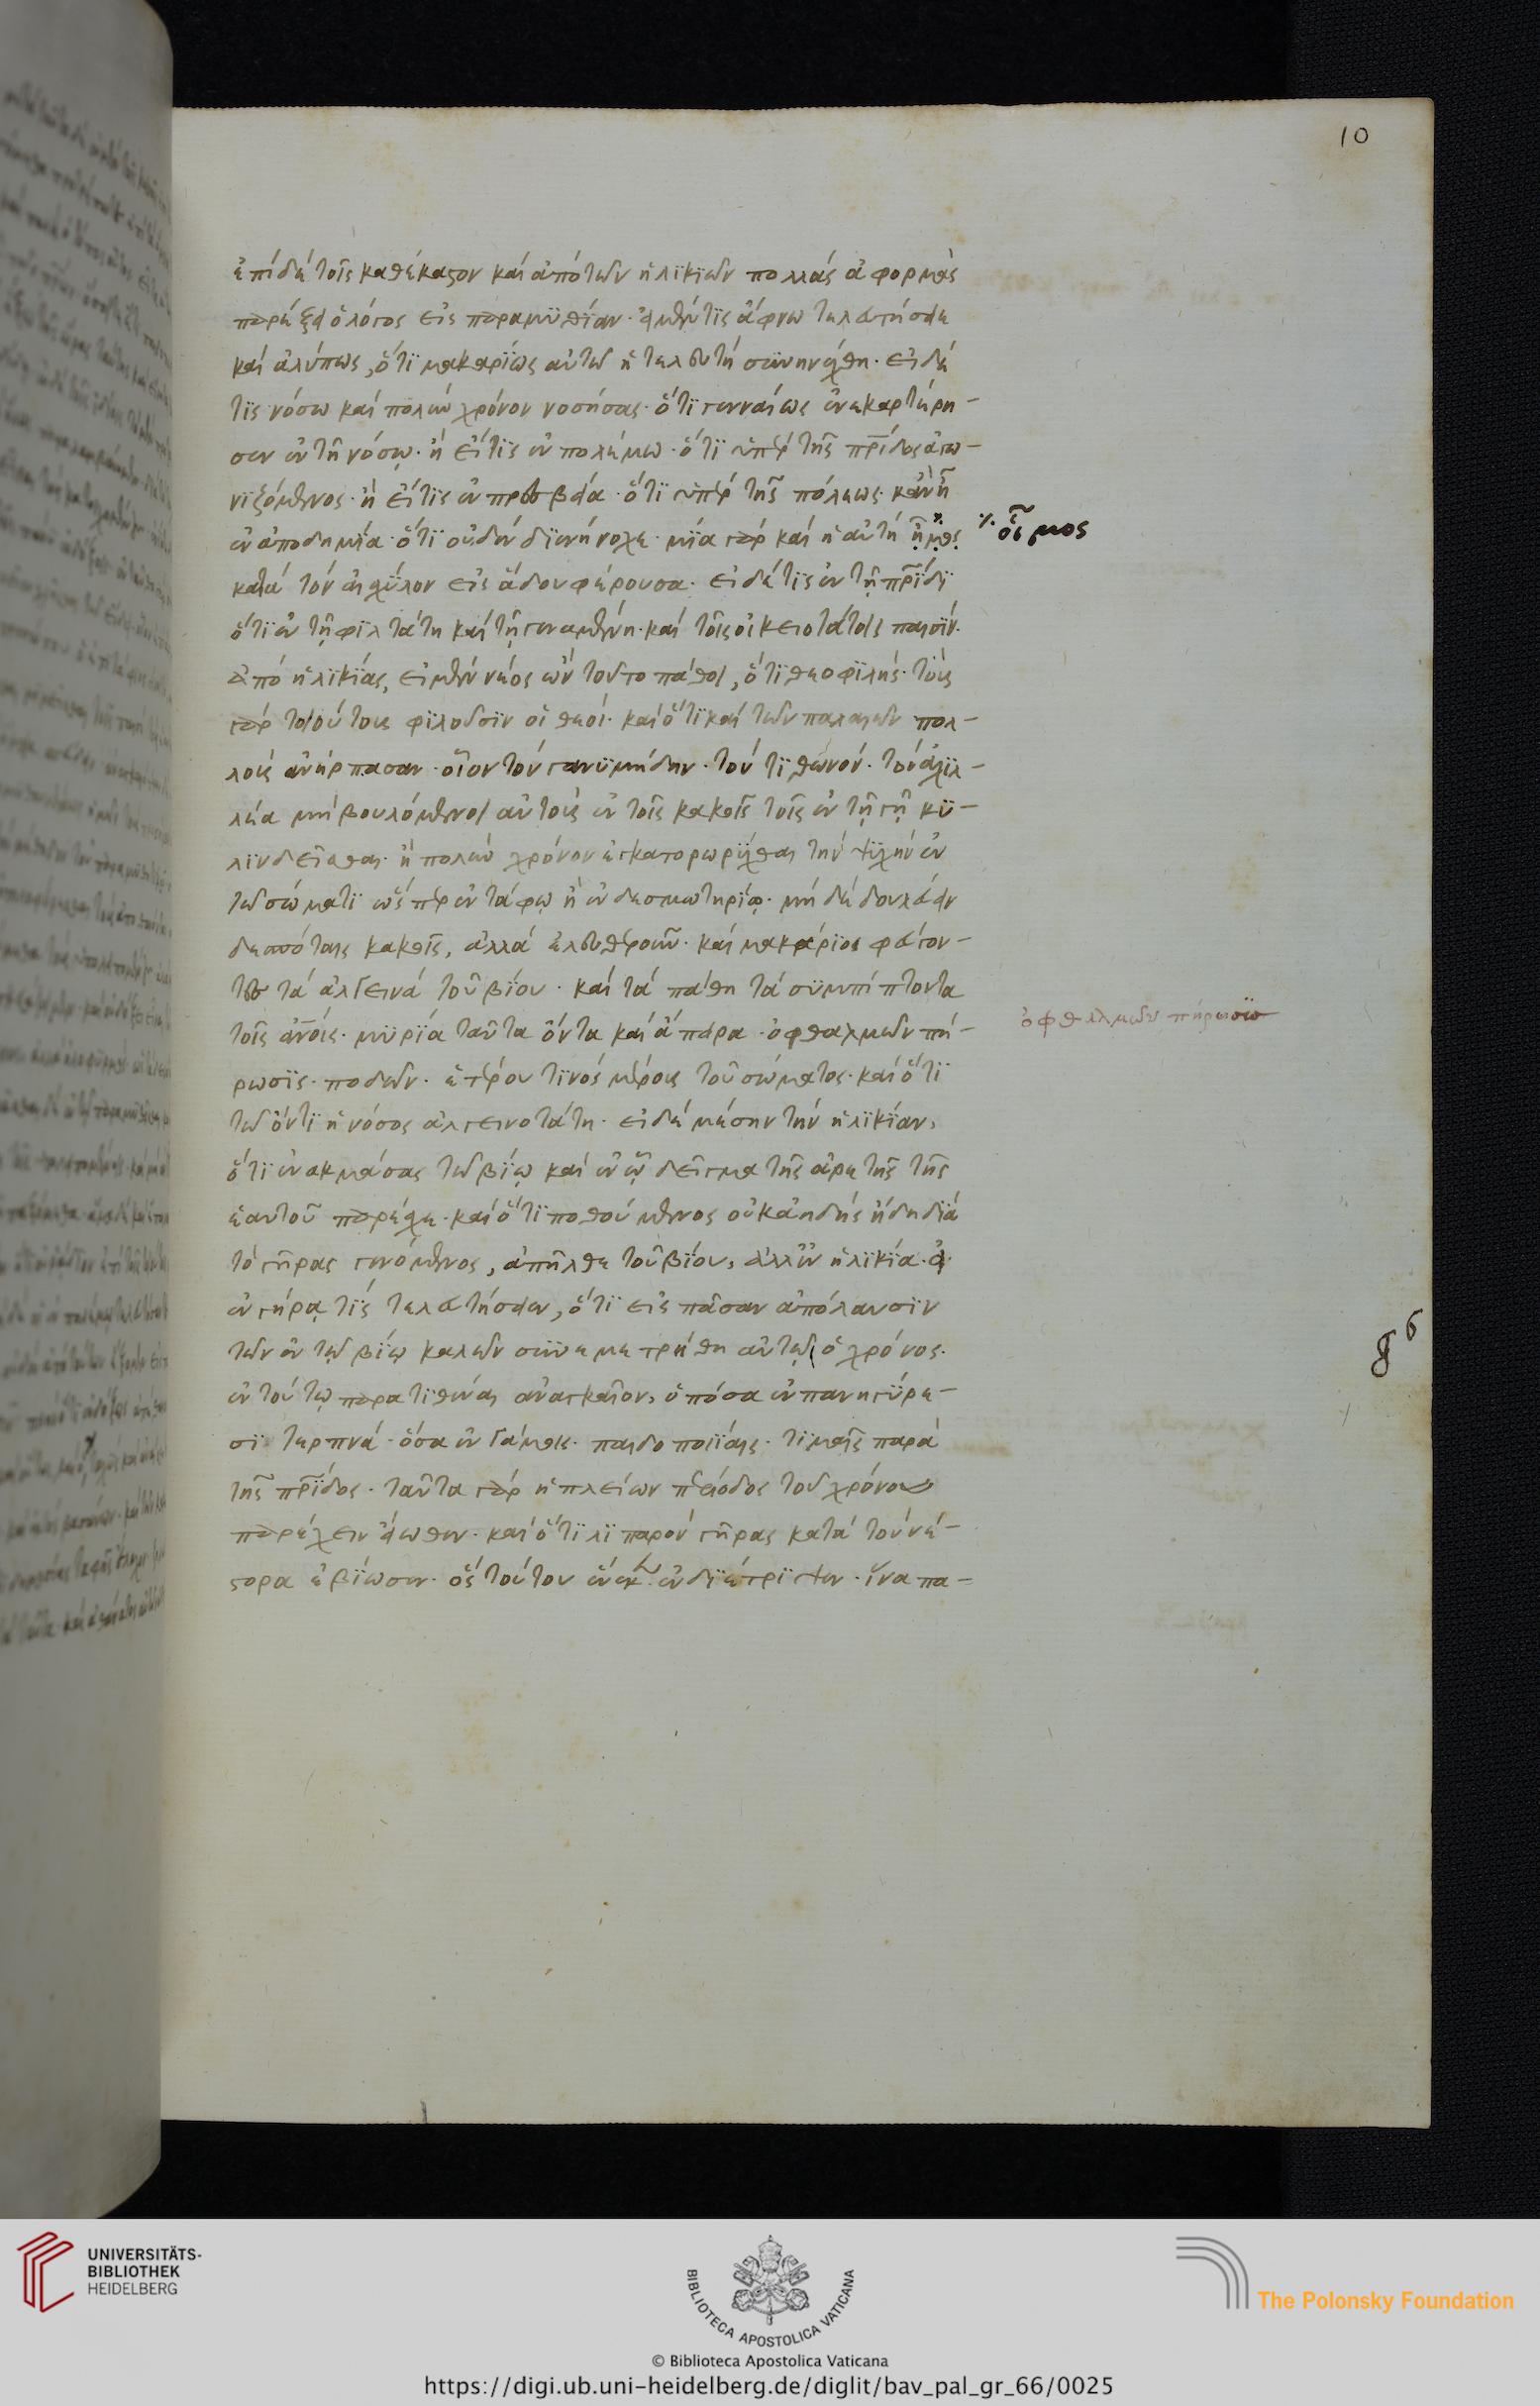 10
ἐπὶ δὲ τοῖς καθέκαστον καὶ ἀπὸ τῶν ἡλϊκϊῶν πολλὰς ἀφορμὰς
παρέξει ὁ λόγος εἰς παραμϋθΐαν. εἰ μέν τϊς ἄφνω τελευτήσειε
καὶ ἀλύπως, ὅτϊ μακαρΐως αὐτῶ ἡ τελευτὴ συνηνέχθη. εἰ δέ
τϊς νόσω καὶ πολὺν χρόνον νοσήσας. ὅτϊ γενναίως ἐνεκαρτέρη-
σεν ἐν τῆ νόσῳ. ἢ εἴ τϊς ἐν πολέμω. ὅτϊ ὑπὲρ τῆς πρίδος ἀγω-
νϊζόμενος. ἢ εἴ τϊς ἐν πρεσβεία. ὅτϊ ὑπὲρ τῆς πόλεως. κἂν ᾖ
ἐν ἀποδημΐα. ὅτϊ οὐδὲν δϊενήνοχε. μΐα γὰρ καὶ ἡ αὐτὴ ἡμᾶς
οἶμος
κατὰ τὸν αἰσχύλον εἰς ἅδου φέρουσα. εἰ δέ τϊς ἐν τῇ πρΐδϊ
ὅτϊ ἐν τῇ φϊλτάτη καὶ τῇ γειναμένη. καὶ τοῖς οἰκειοτάτοις πασϊν.
ἀπὸ ἡλϊκΐας, εἰ μὲν νέος ὢν τοῦτο πάθοι, ὅτϊ θεοφϊλής. τοὺς
γὰρ τοιούτους φϊλοῦσϊν οἱ θεοί. καὶ ὅτϊ καὶ τῶν παλαιῶν πολ-
λοὺς ἀνήρπασαν. οἷον τὸν γανϋμήδην. τὸν τϊθωνόν. τὸν ἀχϊλ-
λέα μὴ βουλόμενοι αὐτοὺς ἐν τοῖς κακοῖς τοῖς ἐν τῇ γῇ κϋ-
λϊνδεῖσθαι. ἢ πολὺν χρόνον ἐγκατορωρΰχθαι τὴν ψϋχὴν ἐν
τῶ σώματϊ ὥσπερ ἐν τάφῳ ἢ ἐν δεσμωτηρίῳ. μὴ δὲ δουλεύειν
δεσπόταις κακοῖς, ἀλλὰ ἐλευθεροῦν. καὶ μακάριος φεύγον-
τες τὰ ἀλγεινὰ τοῦ βΐου. καὶ τὰ πάθη τὰ συμπίπτοντα
τοῖς ἀνοις. μϋρΐα ταῦτα ὄντα καὶ ἄπειρα. ὀφθαλμῶν πή-
ὀφθαλμῶν πήρωσϊς
ρωσϊς. ποδῶν. ἑτέρου τϊνὸς μέρους τοῦ σώματος. καὶ ὅτϊ
τῶ ὄντϊ ἡ νόσος ἀλγεινοτάτη. εἰ δὲ μέσην τὴν ἡλϊκΐαν,
ὅτϊ ἐνακμάσας τῶ βΐῳ καὶ ἐν ᾧ δεῖγμα τῆς ἀρετῆς τῆς
ἑαυτοῦ παρέσχε. καὶ ὅτϊ ποθούμενος οὐκ ἀηδὴς ἤδη δϊὰ
τὸ γῆρας γενόμενος, ἀπῆλθε τοῦ βΐου, ἀλλ' ἐν ἡλϊκΐα. εἰ
ἐν γήρᾳ τϊς τελευτήσειεν, ὅτϊ εἰς πᾶσαν ἀπόλαυσϊν
τῶν ἐν τῷ βίῳ καλῶν συνεμετρήθη αὐτῷ ὁ χρόνος.
ἐν τούτῳ παρατϊθέναι ἀναγκαῖον, ὁπόσα ἐν πανηγύρε-
σϊ τερπνά. ὅσα ἐν γάμοις. παιδοποιΐαις. τϊμαῖς παρὰ
τῆς πρΐδος. ταῦτα γὰρ ἡ πλείων περίοδος τοῦ χρόνου
παρέχειν εἴωθεν. καὶ ὅτϊ λϊπαρὸν γῆρας κατὰ τὸν νέ-
στορα ἐβΐωσεν. ὃς τούτου ἕνεκ ἐνδϊέτρϊψεν. ἵνα πα-
UNIVERSITÄTS-
BIBLIOTHEK
HEIDELBERG
BIBLIOTECA APOSTOLICA VATICANA
The Polonsky Foundation
© Biblioteca Apostolica Vaticana
https://digi.ub.uni-heidelberg.de/diglit/bav_pal_gr_66/0025